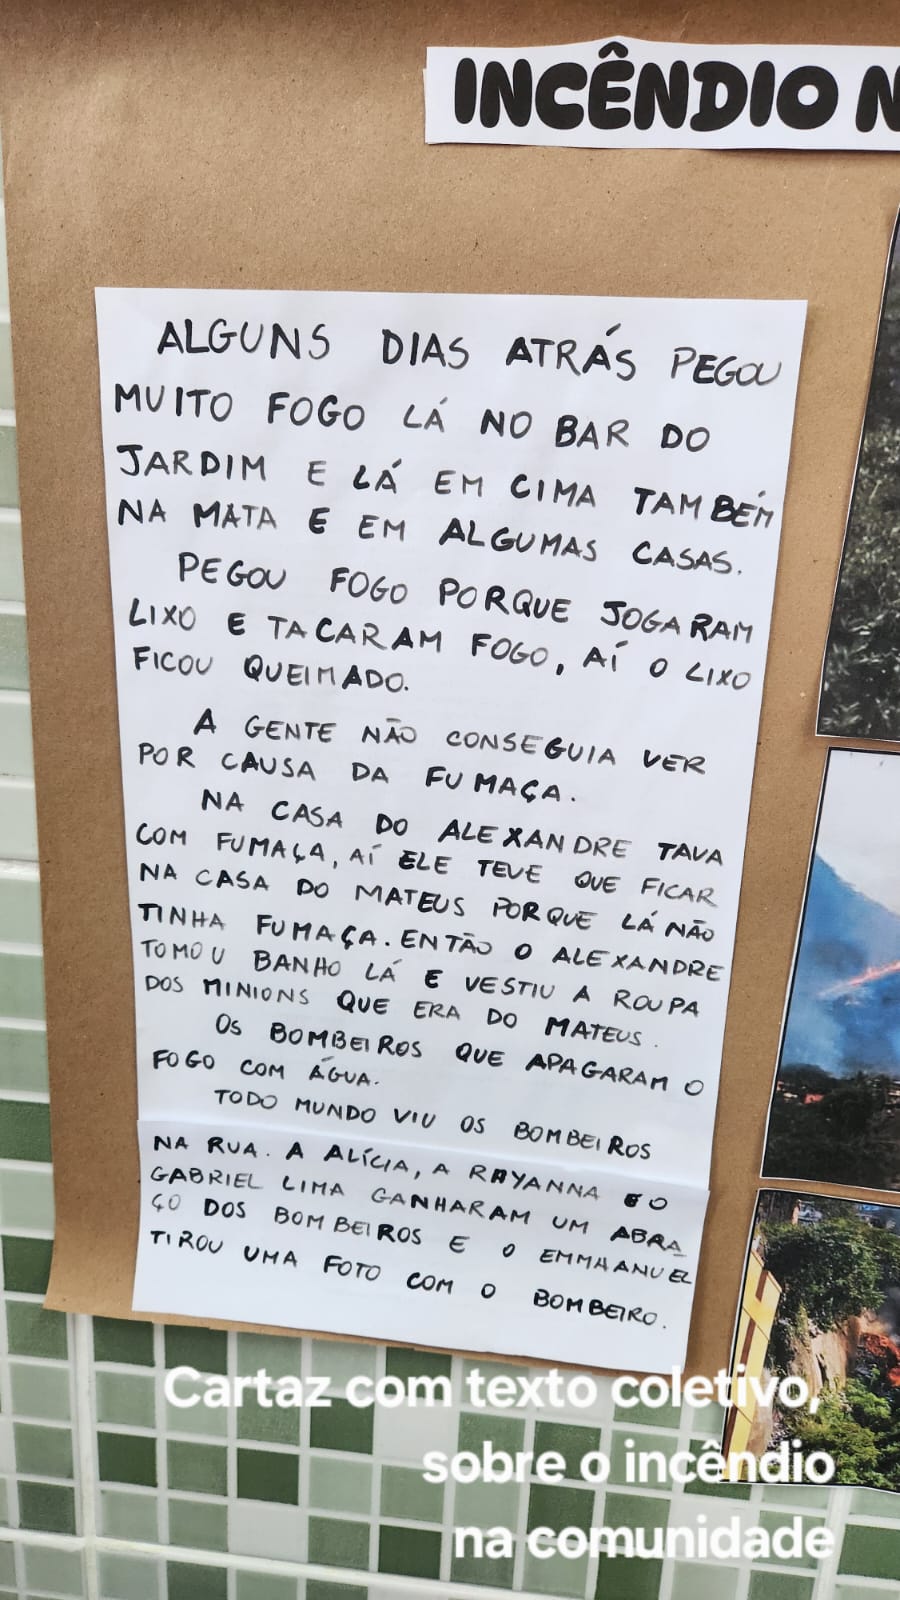 INCÊNDIO N
ALGUNS DIAS ATRÁS PEGOU
MUITO FOGO LÁ NO BAR DO
JARDIM E LÁ EM CIMA TAMBÉM
NA MATA E EM ALGUMAS CASAS.
PEGOU FOGO PORQUE JOGARAM
LIXO E TACARAM FOGO, AÍ O LIXO
FICOU QUEIMADO.
A GENTE NÃO CONSEGUIA VER
POR CAUSA DA FUMAÇA.
NA CASA DO ALEXANDRE TAVA
COM FUMAÇA, AÍ ELE TEVE QUE FICAR
NA CASA DO MATEUS PORQUE LÁ NÃO
TINHA FUMAÇA. ENTÃO O ALEXANDRE
TOMOU BANHO LÁ E VESTIU A ROUPA
DOS MINIONS QUE ERA DO MATEUS.
OS BOMBEIROS QUE APAGARAM O
FOGO COM ÁGUA.
TODO MUNDO VIU OS BOMBEIROS
NA RUA. A ALÍCIA, A RAYANNA E O
GABRIEL LIMA GANHARAM UM ABRA_
ÇO DOS BOMBEIROS E O EMMHANUEL
TIROU UMA FOTO COM O BOMBEIRO.
Cartaz com texto coletivo,
sobre o incêndio
na comunidade